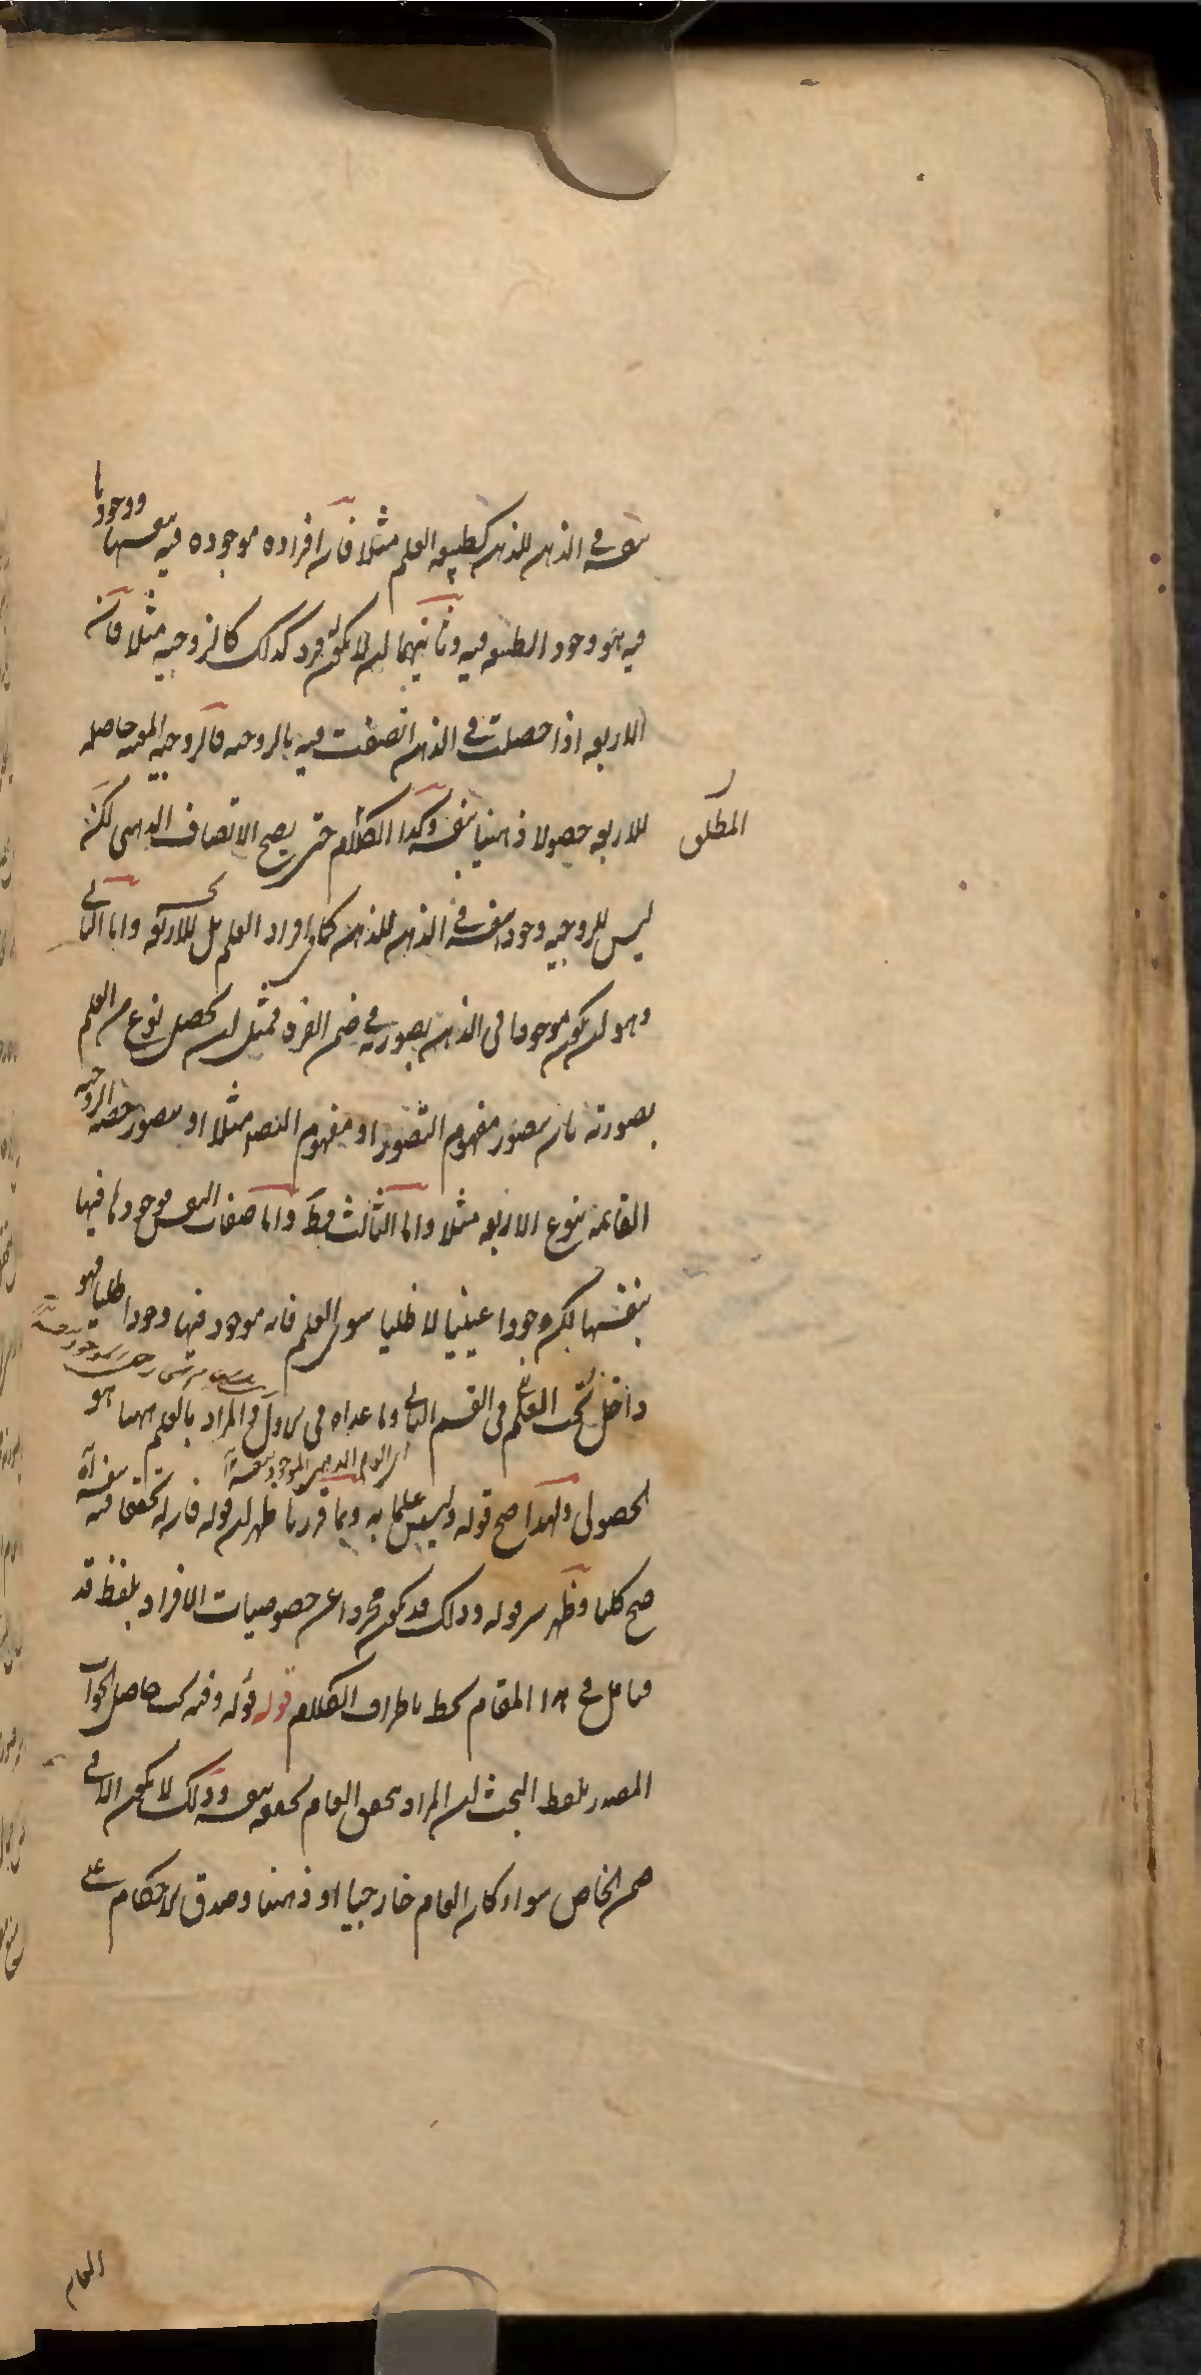 بنفسه في الذهن للذهن كطبيعة العلم مثلا فان افراده موجوده فيه بنفسها ووجودها
فيه هو وجود الطبيعه فيه وثانيهما ان لا يكون فرد كذلك كالزوجيه مثلا فان
الاربعه اذا حصلت في الذهن اتصفت فيه بالزوجيه فالزوجيه المعينه حاصله
للاربعه حصولا ذهنيا بنفسه وكذا الكلام حتى يصح الاتصاف الذهني لكن
المطلق
ليس للزوجيه وجود بنفسه في الذهن للذهن كما في افراد العلم بل للاربعه واما الثاني
وهو ان يكون موجودا في الذهن بصورته في ضمن الفرد فمثل ان يحصل نوع من العلم
بصورته بان يتصور مفهوم التصور او مفهوم التصديق مثلا او يتصور حصه الزوجيه
القائمه بنوع الاربعه مثلا واما الثالث فقط واما صفات النفس فوجودها فيها
بنفسها لكن وجودا عينيا لا ظليا سوى العلم فانه موجود فيها وجودا ظليا فهو
داخل تحت العلم في القسم الثاني وما عداه في الاول والمراد بالعلم ههنا هو
اي العلم الذهني الموجود بنفسه
الحصولي ولهذا صح قوله وليس علما به وبما قررنا ظهر ان قوله فان له تحققا فيه بنفسه
صح كليا وظهر سر قوله وذلك قد يكون مجردا عن خصوصيات الافراد بلفظ قد
فتامل في هذا المقام تحط باطراف الكلام قوله قوله وفيه بحث حاصل الجواب
المصدر بلفظ البحث ان المراد بتحقق العام تحققه بنفسه وذلك لا يكون الا في
ضمن الخاص سواء كان العام خارجيا او ذهنيا وصدق الاحكام على
العام